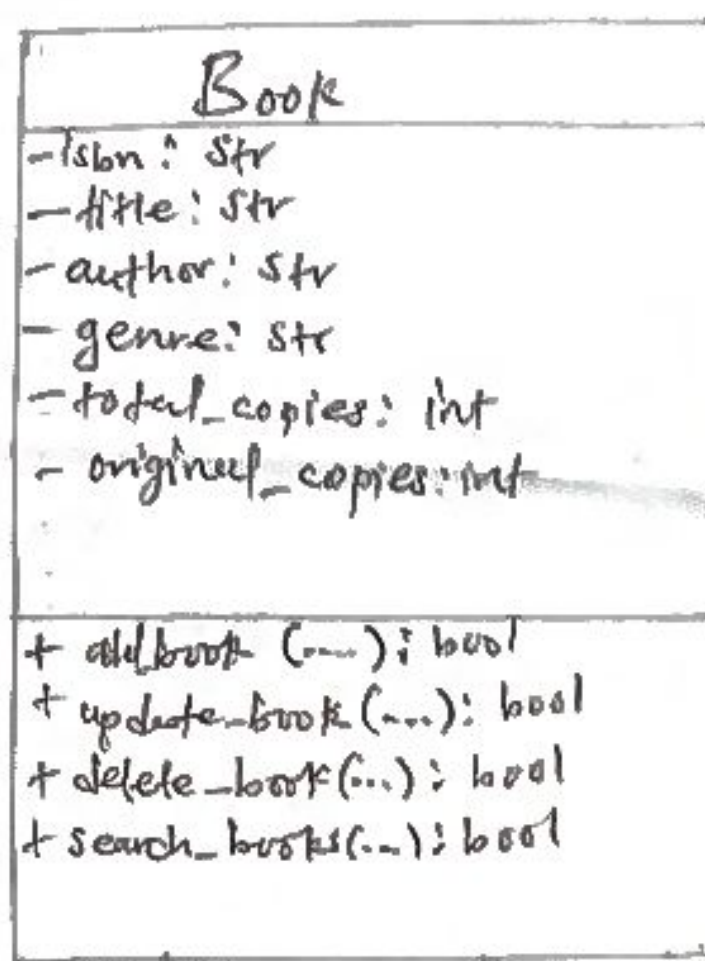 Book
- Isbn: str
- title: str
- author: str
- genre: str
- total_copies: int
- original_copies: int
+ add_book (....): bool
+ update_book(...): bool
+ delete_book(...): bool
+ search_books(...): bool